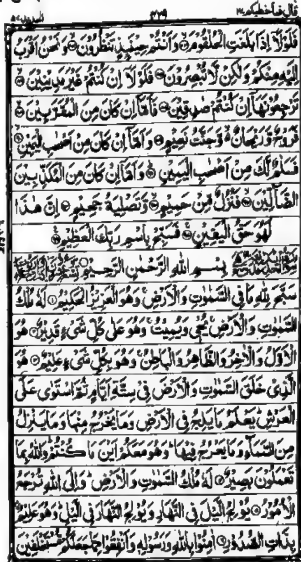 قال فما خطبكم ٢٧ ٤٣٩
فَلَوْلَا إِذَا بَلَغَتِ الْحُلْقُومَ وَأَنْتُمْ حِينَئِذٍ تَنْظُرُونَ وَنَحْنُ أَقْرَبُ
إِلَيْهِ مِنْكُمْ وَلَكِنْ لَا تُبْصِرُونَ فَلَوْلَا إِنْ كُنْتُمْ غَيْرَ مَدِينِينَ
تَرْجِعُونَهَا إِنْ كُنْتُمْ صَدِقِينَ فَأَمَّا إِنْ كَانَ مِنَ الْمُقَرَّبِينَ
فَرَوْحٌ وَرَيْحَانٌ وَجَنَّتُ نَعِيمٍ وَأَمَّا إِنْ كَانَ مِنْ أَصْحَبِ الْيَمِينِ
فَسَلَمٌ لَكَ مِنْ أَصْحَبِ الْيَمِينِ وَأَمَّا إِنْ كَانَ مِنَ الْمُكَذِّبِينَ
الضَّالِّينَ فَنُزُلٌ مِنْ حَمِيمٍ وَتَصْلِيَةُ جَحِيمٍ إِنَّ هَذَا
لَهُوَ حَقُّ الْيَقِينِ فَسَبِّحْ بِاسْمِ رَبِّكَ الْعَظِيمِ
بِسْمِ اللَّهِ الرَّحْمَنِ الرَّحِيمِ
سَبَّحَ لِلَّهِ مَا فِي السَّمَوَتِ وَالْأَرْضِ وَهُوَ الْعَزِيزُ الْحَكِيمُ لَهُ مُلْكُ
السَّمَوَتِ وَالْأَرْضِ يُحْيِ وَيُمِيتُ وَهُوَ عَلَى كُلِّ شَيْءٍ قَدِيرٌ هُوَ
الْأَوَّلُ وَالْآخِرُ وَالظَّاهِرُ وَالْبَاطِنُ وَهُوَ بِكُلِّ شَيْءٍ عَلِيمٌ هُوَ
الَّذِي خَلَقَ السَّمَوَتِ وَالْأَرْضَ فِي سِتَّةِ أَيَّامٍ ثُمَّ اسْتَوَى عَلَى
الْعَرْشِ يَعْلَمُ مَا يَلِجُ فِي الْأَرْضِ وَمَا يَخْرُجُ مِنْهَا وَمَا يَنْزِلُ
مِنَ السَّمَاءِ وَمَا يَعْرُجُ فِيهَا وَهُوَ مَعَكُمْ أَيْنَ مَا كُنْتُمْ وَاللَّهُ بِمَا
تَعْمَلُونَ بَصِيرٌ لَهُ مُلْكُ السَّمَوَتِ وَالْأَرْضِ وَإِلَى اللَّهِ تُرْجَعُ
الْأُمُورُ يُولِجُ الَّيْلَ فِي النَّهَارِ وَيُولِجُ النَّهَارَ فِي الَّيْلِ وَهُوَ عَلِيمٌ
بِذَاتِ الصُّدُورِ آمِنُوا بِاللَّهِ وَرَسُولِهِ وَأَنْفِقُوا مِمَّا جَعَلَكُمْ مُسْتَخْلَفِينَ